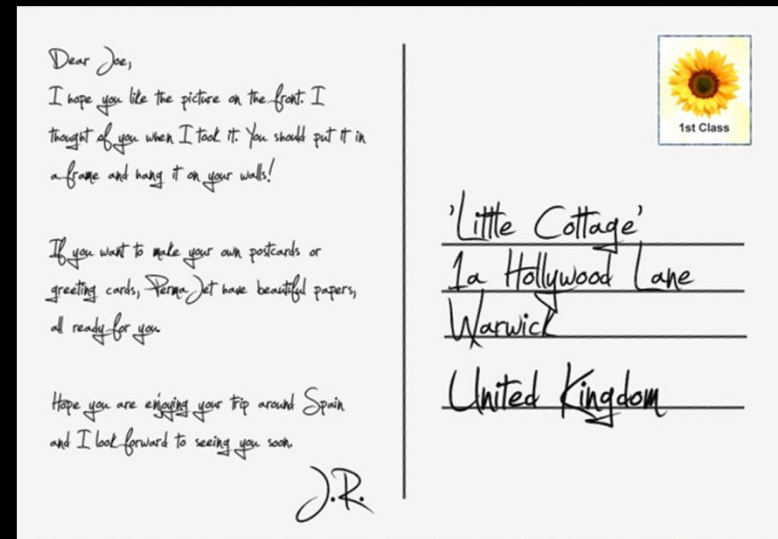 Dear Joe,
I hope you like the picture on the front. I
thought of you when I took it. You should put it in
a frame and hang it on your walls!
If you want to make your own postcards or
greeting cards, PermaJet have beautiful papers,
all ready for you.
Hope you are enjoying your trip around Spain
and I look forward to seeing you soon.
J.R.
1st Class
'Little Cottage'
1a Hollywood Lane
Warwick
United Kingdom